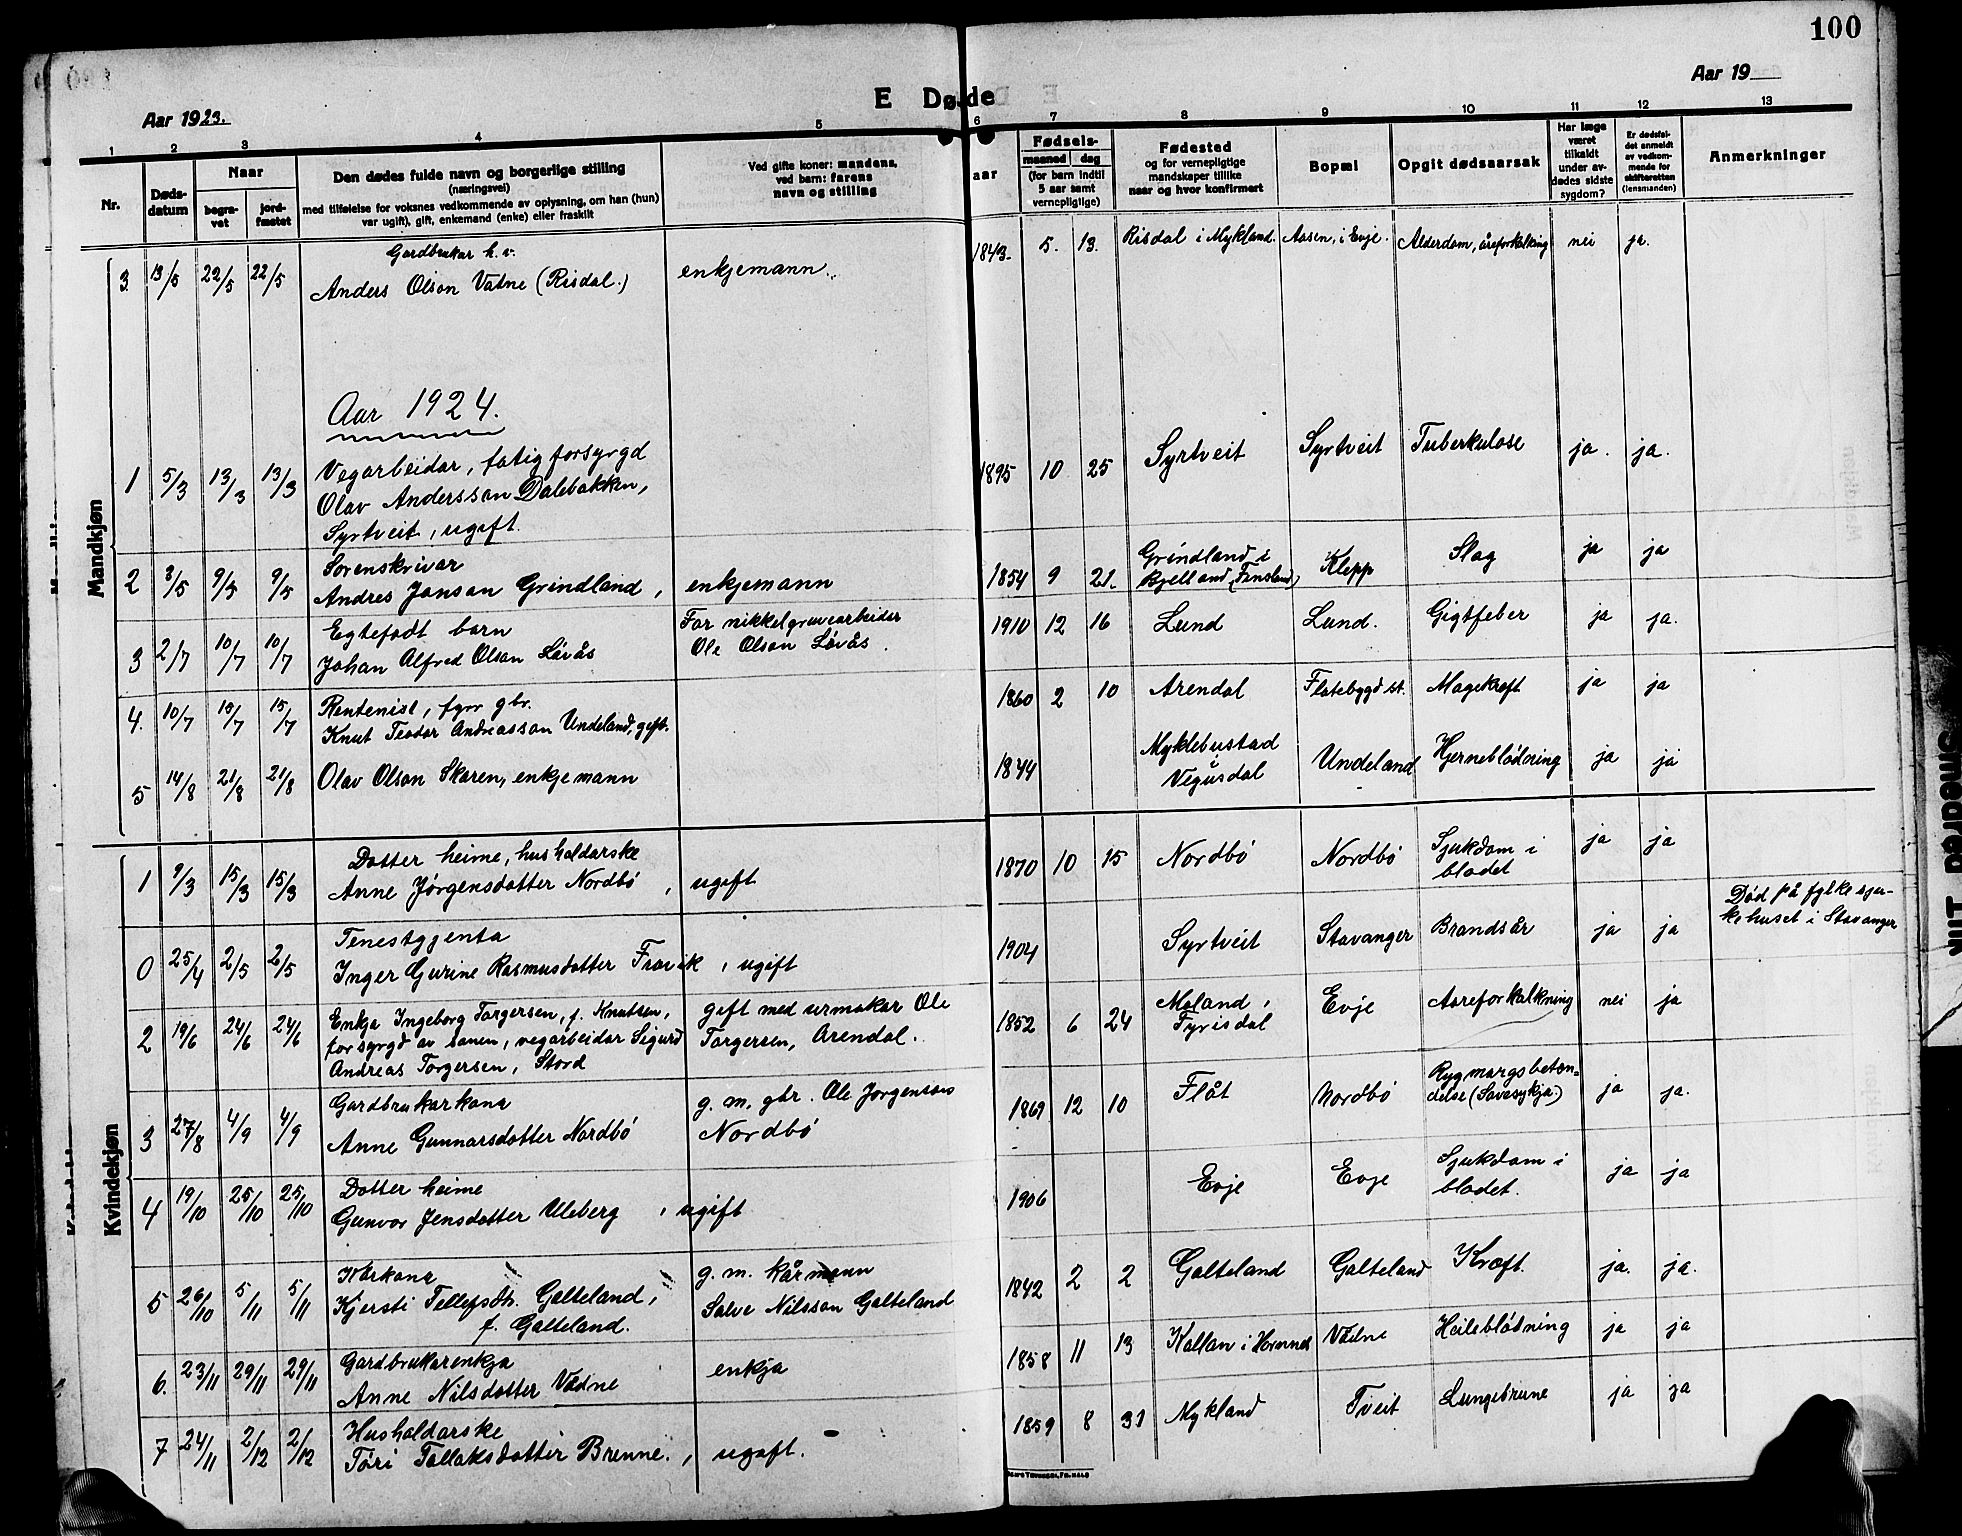 100
Aar 1923.
E Døde
Aar 19
1 2 3 4 5 6 7 8 9 10 11 12 13
Nr.
Døds-
datum
Naar
begra-
vet
jord-
fæstet
Den dødes fulde navn og borgerlige stilling
(næringsvei)
med tilføielse for voksnes vedkommende av oplysning, om han (hun)
var ugift), gift, enkemand (enke) eller fraskilt
Ved gifte koner: mandens,
ved barn: farens
navn og stilling
aar
Fødsels-
maaned dag
(for barn indtil
5 aar samt
vernepligtige)
Fødested
og for vernepligtige
mandskaper tillike
naar og hvor konfirmert
Bopæl
Opgit dødsaarsak
Har læge
været
tilkaldt
under av-
dødes sidste
sygdom?
Er dødsfal-
det anmeldt
av vedkom-
mende for
skifteretten
(lensmanden)
Anmerkninger
Mandkjøn
Gardbrukar h. v.
3. 13/5 22/5 22/5 Anders Olson Vatne (Risdal.) enkjemann. 1843. 5. 13. Risdal i Mykland. Aasen, i Evje. Alderdom, åreforkalking nei ja.
Aar 1924.
Vegarbeidar, fatigforsyrgd
1 5/3 13/3 13/3 Olav Andersson Dalebakken, 1895 10 25 Syrtveit Syrtveit Tuberkulose ja. ja.
Syrtveit, ugift.
Sorenskrivar
2 3/5 9/5 9/5 Andres Jonson Grindland, enkjemann 1854 9 21. Grindland i
Bjelland (Finsland) Klepp Slag ja ja
Egtefødt barn Far nikkelgruvearbeider
3 2/7 10/7 10/7 Johan Alfred Olson Lövås Ole Olson Lövås. 1910 12 16 Lund Lund. Gigtfeber ja ja.
Rentenist, fyrr gbr.
4. 10/7 15/7 15/7 Knut Teodor Andreasson Undeland, gift. 1860 2 10 Arendal Flatebygd st. Magekreft ja ja
5 14/8 21/8 21/8 Olav Olson Skaren, enkjemann 1844 Myklebustad
Vegusdal Undeland Hjerneblödning ja ja
Kvindekjøn
Dotter heime, hushaldarske
1 9/3 15/3 15/3 Anne Jörgensdotter Nordbö, ugift 1870 10 15 Nordbö Nordbö Sjukdom i
blodet ja ja
Tenestgjenta
0 25/4 2/5 2/5 Inger Gurine Rasmusdotter Fravik, ugift 1904 Syrtveit Stavanger Brandsår ja ja Död på fylkesju-
kehuset i Stavanger
Enkja Ingeborg Torgersen, f. Knutsen, gift med urmakar Ole
2 19/6 24/6 24/6 forsyrgd av sonen, vegarbeidar Sigurd Torgersen, Arendal. 1852 6 24 Moland i
Fyrisdal Evje Aareforkalkning nei ja
Andreas Torgersen, Stord
Gardbrukarkona g. m. gbr. Ole Jorgenson
3 27/8 4/9 4/9 Anne Gunnarsdotter Nordbö Nordbö 1869 12 10 Flåt Nordbö Rygmargsbeten-
delse (Savesykja.) ja ja.
Dotter heime
4 19/10 25/10 25/10 Gunvor Jensdotter Uleberg, ugift 1906 Evje Evje Sjukdom i
blodet. ja ja
Kårkona g. m. kårmann
5 26/10 5/11 5/11 Kjersti Tellefsdtr. Galteland, Salve Nilsson Galteland 1842 2 2 Galteland Galteland Kræft. ja. ja.
f. Galteland.
Gardbrukarenkja
6. 23/11 29/11 29/11 Anne Nilsdotter Vadne enkja 1858 11 13 Kallan i Hornnes Vadne Heileblödning ja ja
Hushaldarske
7 24/11 2/12 2/12 Töri Tallaksdotter Brenne., ugift. 1859 8 31 Mykland Tveit Lungebrune ja ja